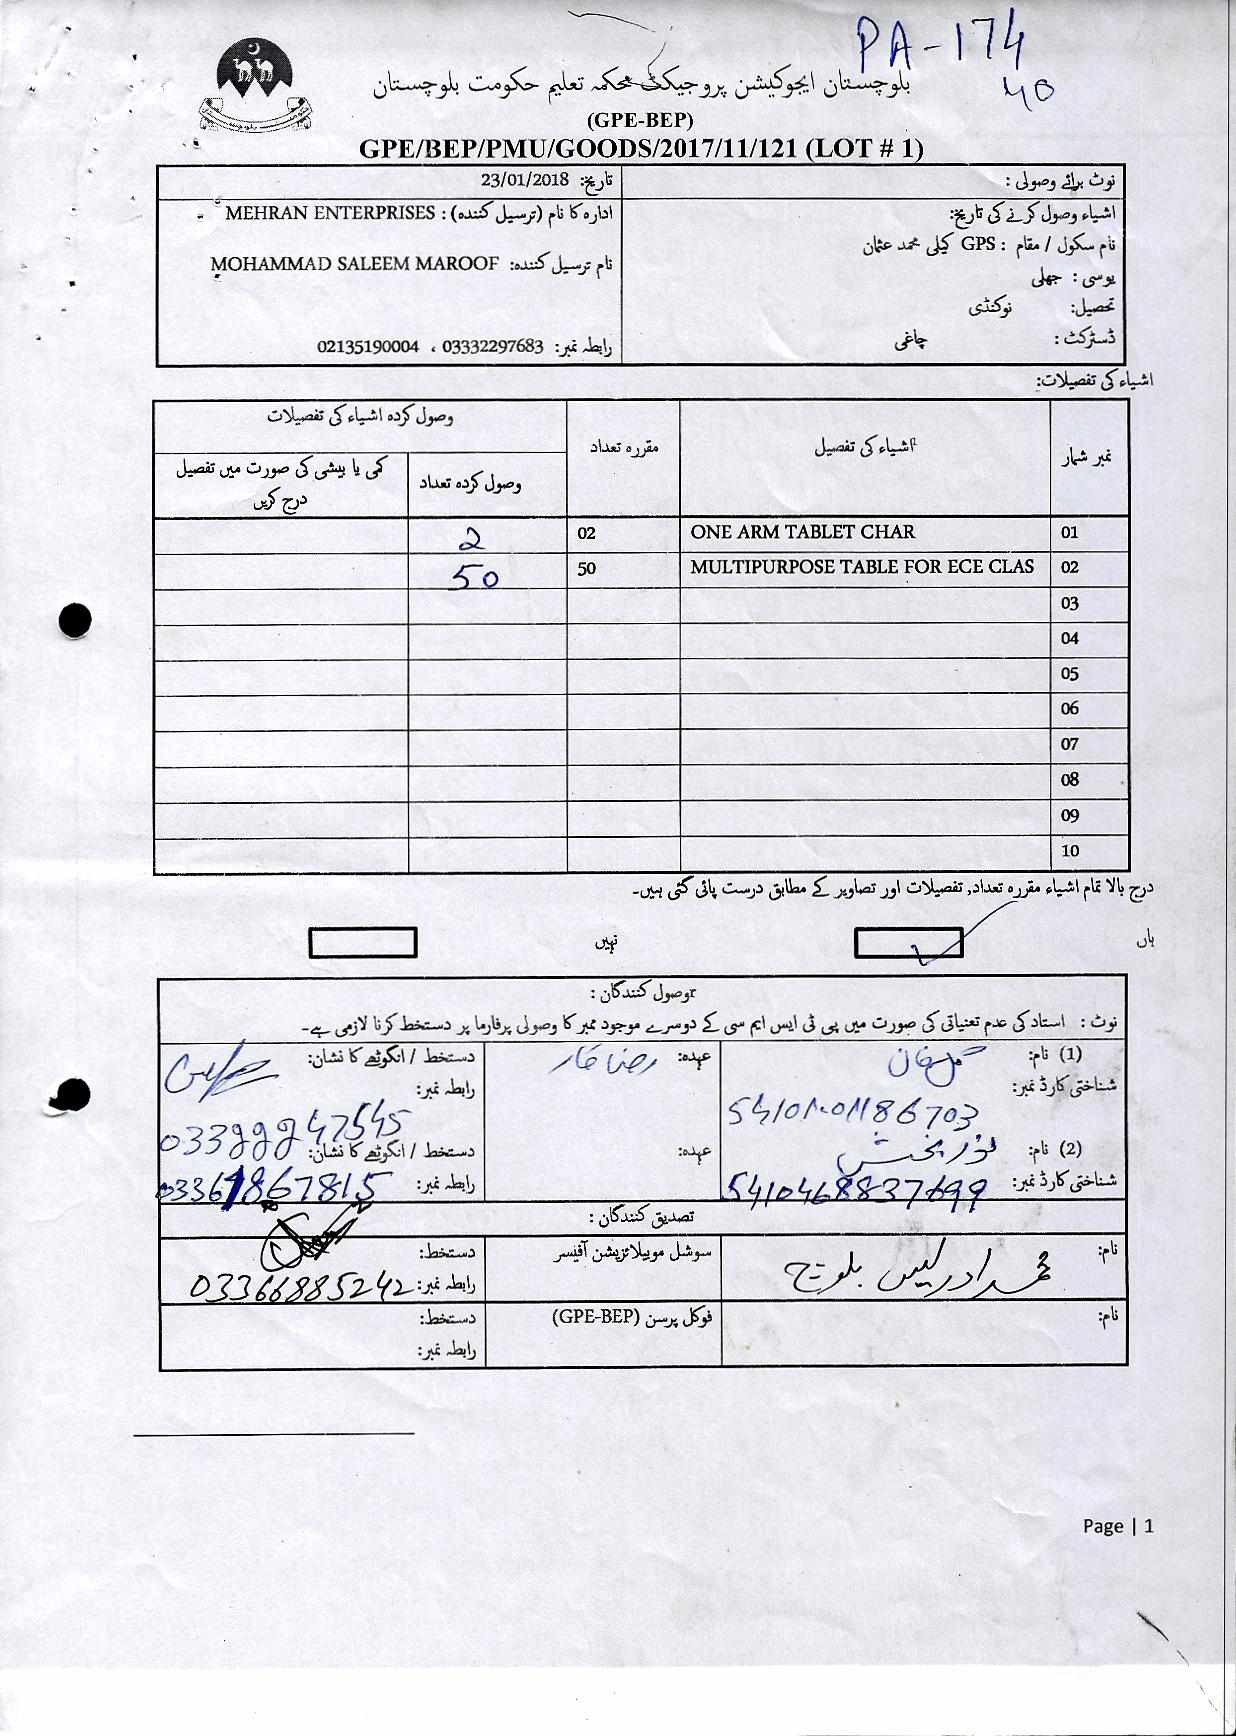 PA-174
40
بلوچستان ایجوکیشن پروجیکٹ محکمہ تعلیم حکومت بلوچستان
(GPE-BEP)
GPE/BEP/PMU/GOODS/2017/11/121 (LOT # 1)
نوٹ برائے وصولی :
اشیاء وصول کرنے کی تاریخ:
نام سکول / مقام : GPS کیلی محمد عثمان
یوسی : جھلی
تحصیل: نوکنڈی
ڈسٹرکٹ : چاغی
تاریخ: 23/01/2018
ادارہ کا نام (ترسیل کنندہ) : MEHRAN ENTERPRISES
نام ترسیل کنندہ: MOHAMMAD SALEEM MAROOF
رابطہ نمبر: 03332297683 ، 02135190004
اشیاء کی تفصیلات:
نمبر شمار اشیاء کی تفصیل مقررہ تعداد وصول کردہ اشیاء کی تفصیلات
وصول کردہ تعداد کمی یا بیشی کی صورت میں تفصیل درج کریں
01 ONE ARM TABLET CHAR 02 2
02 MULTIPURPOSE TABLE FOR ECE CLAS 50 50
03
04
05
06
07
08
09
10
درج بالا تمام اشیاء مقررہ تعداد, تفصیلات اور تصاویر کے مطابق درست پائی گئی ہیں۔
ہاں نہیں
وصول کنندگان :
نوٹ : استاد کی عدم تعنیاتی کی صورت میں پی ٹی ایس ایم سی کے دوسرے موجود ممبر کا وصولی پرفارما پر دستخط کرنا لازمی ہے۔
(1) نام: گل خان عہدہ: رضا کار دستخط / انگوٹھے کا نشان:
شناختی کارڈ نمبر: رابطہ نمبر:
(2) نام: نور بخش عہدہ: دستخط / انگوٹھے کا نشان:
شناختی کارڈ نمبر: 5410468837699 رابطہ نمبر: 03361867815
تصدیق کنندگان :
نام: محمد ادریس بلوچ سوشل موبیلائزیشن آفیسر دستخط:
رابطہ نمبر: 03366885242
نام: فوکل پرسن (GPE-BEP) دستخط:
رابطہ نمبر:
Page | 1